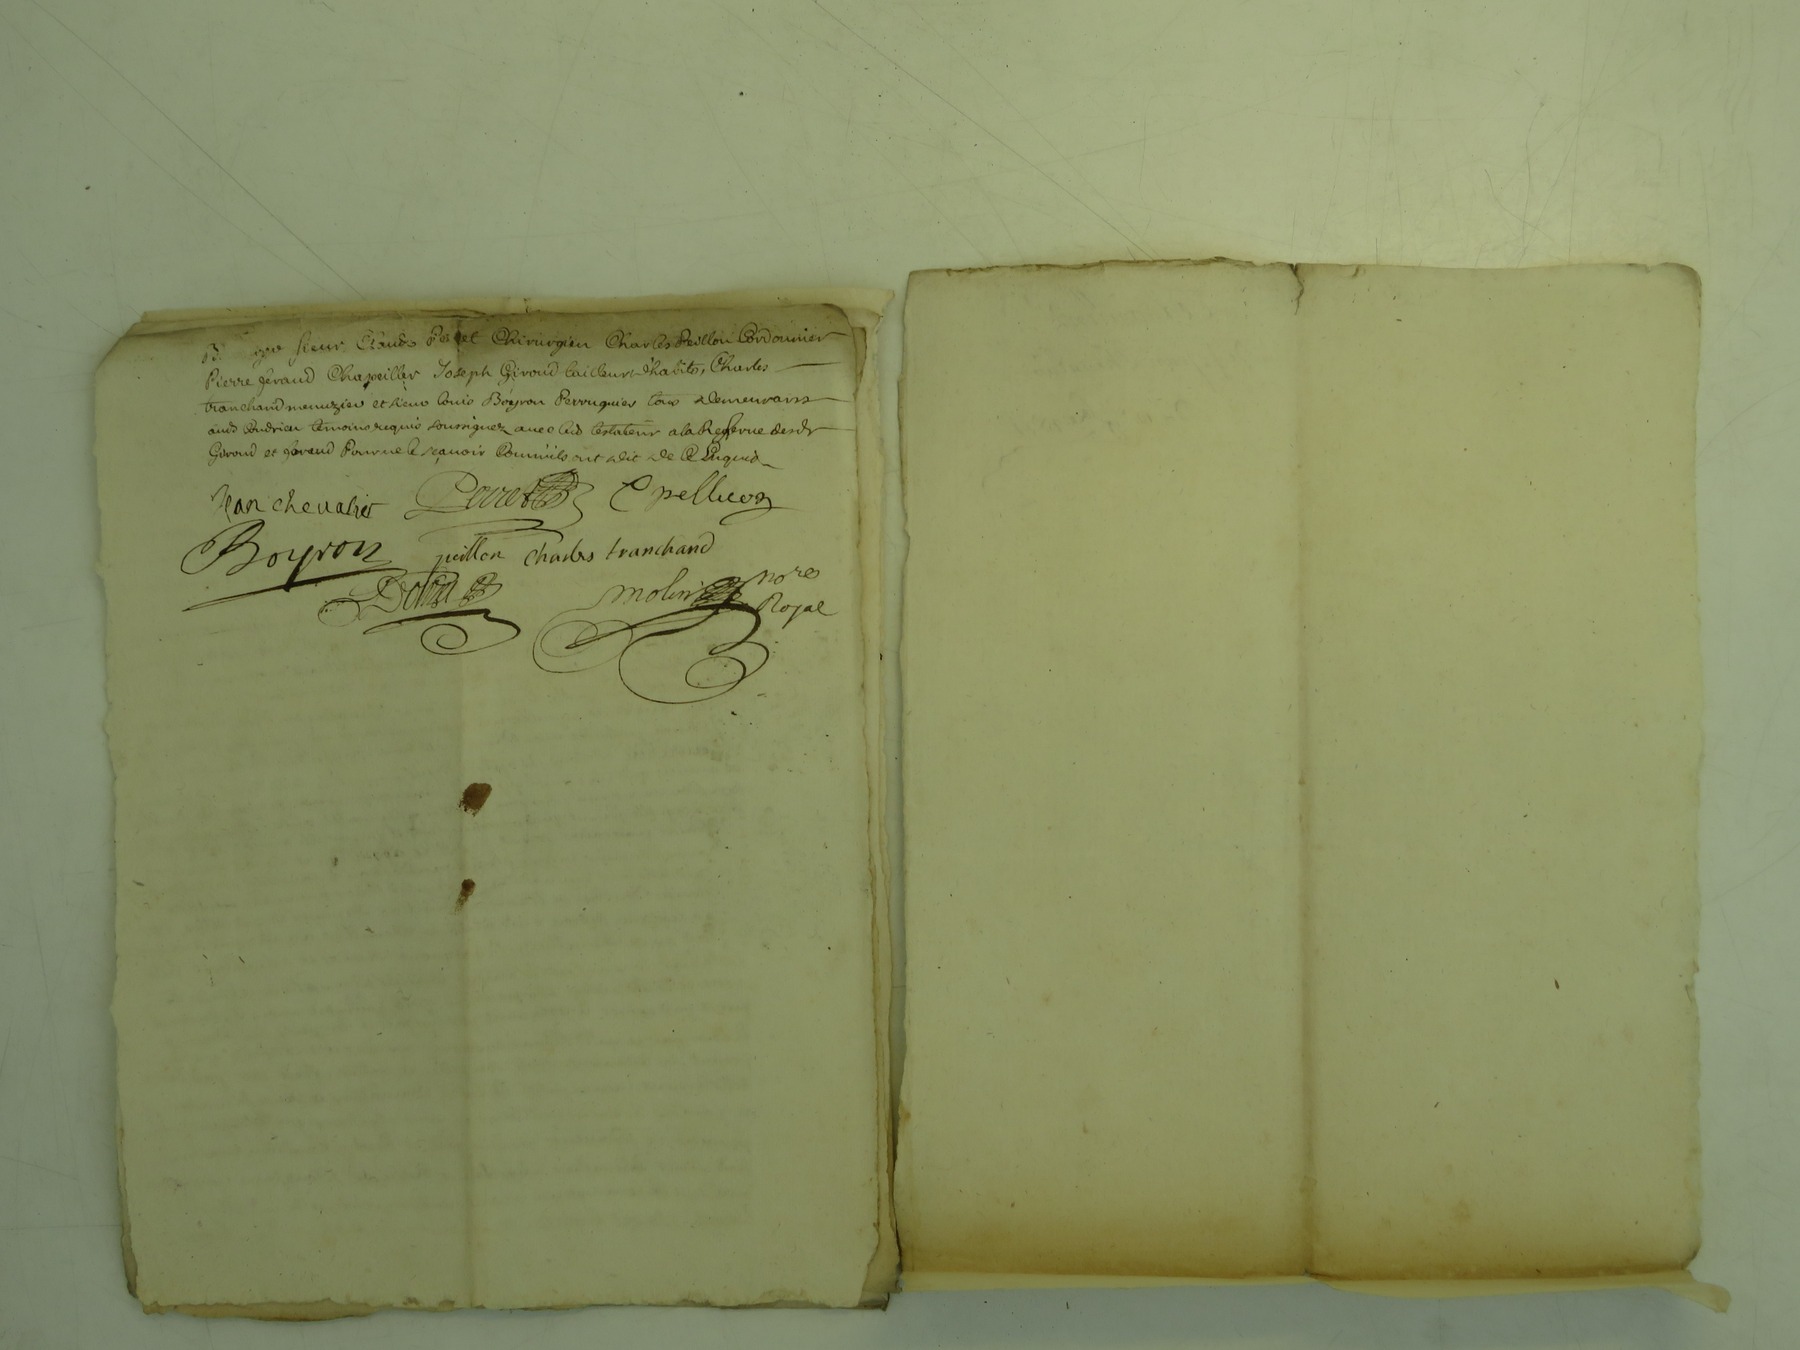 sieur Claude Perret Chirurgien Charles Peillon Cordonnier
Pierre geraud Chapeillier Joseph Giroud tailleur d'habits, Charles
tranchand menuzier et sieur louis Boyron Perruquier tous demeurans
aud Condrieu temoins requis soussignez avec led testateur a la Reserve desds
Giroud et geraud Pour ne le sçavoir Comm'ils ont dit de Ce Enquis
Jean chevalier Perret C pellicon
Boyron peillon charles tranchand
molin nore
Royal